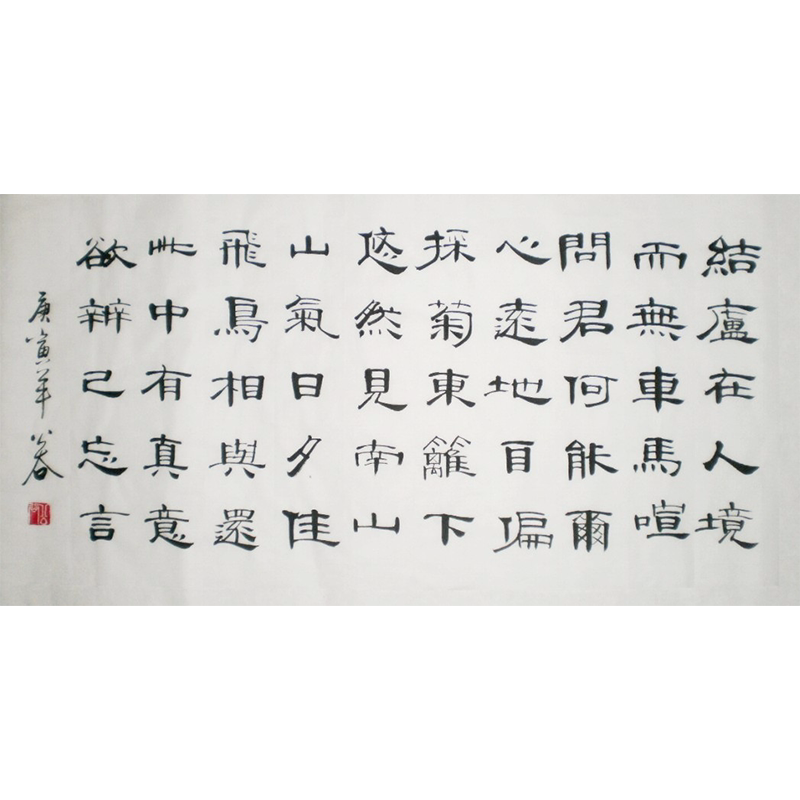 結廬在人境
而無車馬喧
問君何能爾
心遠地自偏
採菊東籬下
悠然見南山
山氣日夕佳
飛鳥相與還
此中有真意
欲辨己忘言
庚寅年